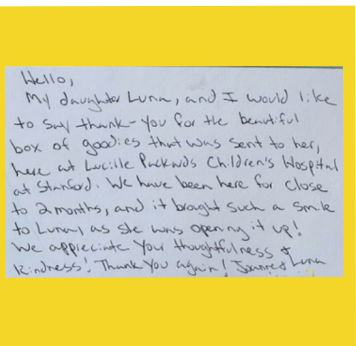 Hello,
My daughter Luna, and I would like
to say thank-you for the beautiful
box of goodies that was sent to her,
here at Lucille Packards Children's Hospital
at Stanford. We have been here for close
to 2 months, and it brought such a smile
to Luna, as she was opening it up!
We appreciate your thoughtfulness &
kindness! Thank you again! Joanne & Luna